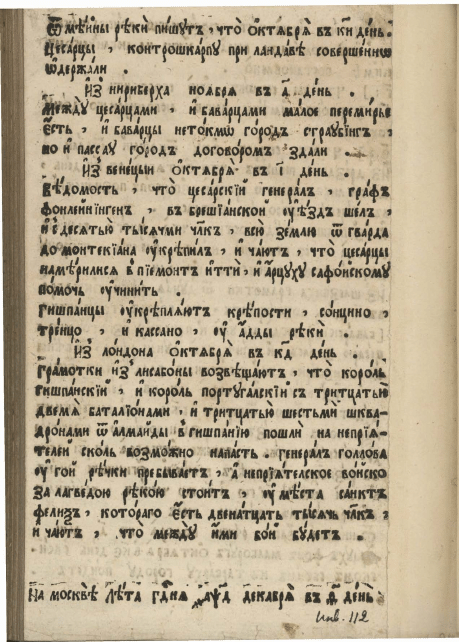 Ѿ мѣины рѣки пишутъ, что октября въ к҃и день.
Цесарцы, контрошкарпу при ландавѣ совершеннѡ
ѡдержали.
Из ниріберха ноября въ а҃ день.
Между цесарцами, и баварцами малое перемирье
есть, и баварцы нетокмѡ городъ страубінгъ,
но и пассау городъ договоромъ здали.
Из венецыи октября въ і҃ день.
Вѣдомость, что цесарскїй генералъ, графъ
фонлеинінгенъ, въ брешїанской уѣздъ шелъ,
и с десятью тысячми чл҃къ, всю землю ѿ гварда
до монтекїана укрѣпилъ, и чаютъ, что цесарцы
намѣрилися в пїемонтъ итти, и арцуху сафоискому
помочь учинить.
Гишпанцы укрѣпляютъ крѣпости, сонцино,
тренцо, и кассано, у адды рѣки.
Из лондона октября въ к҃д день.
Грамотки из лисабоны возвѣщаютъ, что король
гишпанскїй, и король португалскїй съ тритцатью
двемя баталїонами, и тритцатью шестьми шква-
дронами ѿ алмаиды в гишпанїю пошли на непрїя-
телеи сколь возможно напасть. генералъ голлова
у гои рѣчки пребываетъ, а непрїятелское воиско
за лагведою рѣкою стоитъ, у мѣста санктъ
фелизъ, котораго есть двенатцать тысячь чл҃къ,
и чаютъ, что между ими бои будетъ.
На москвѣ лѣта гд҃ня ҂аѱд декабря въ ѳ҃ день.
Инв. 112